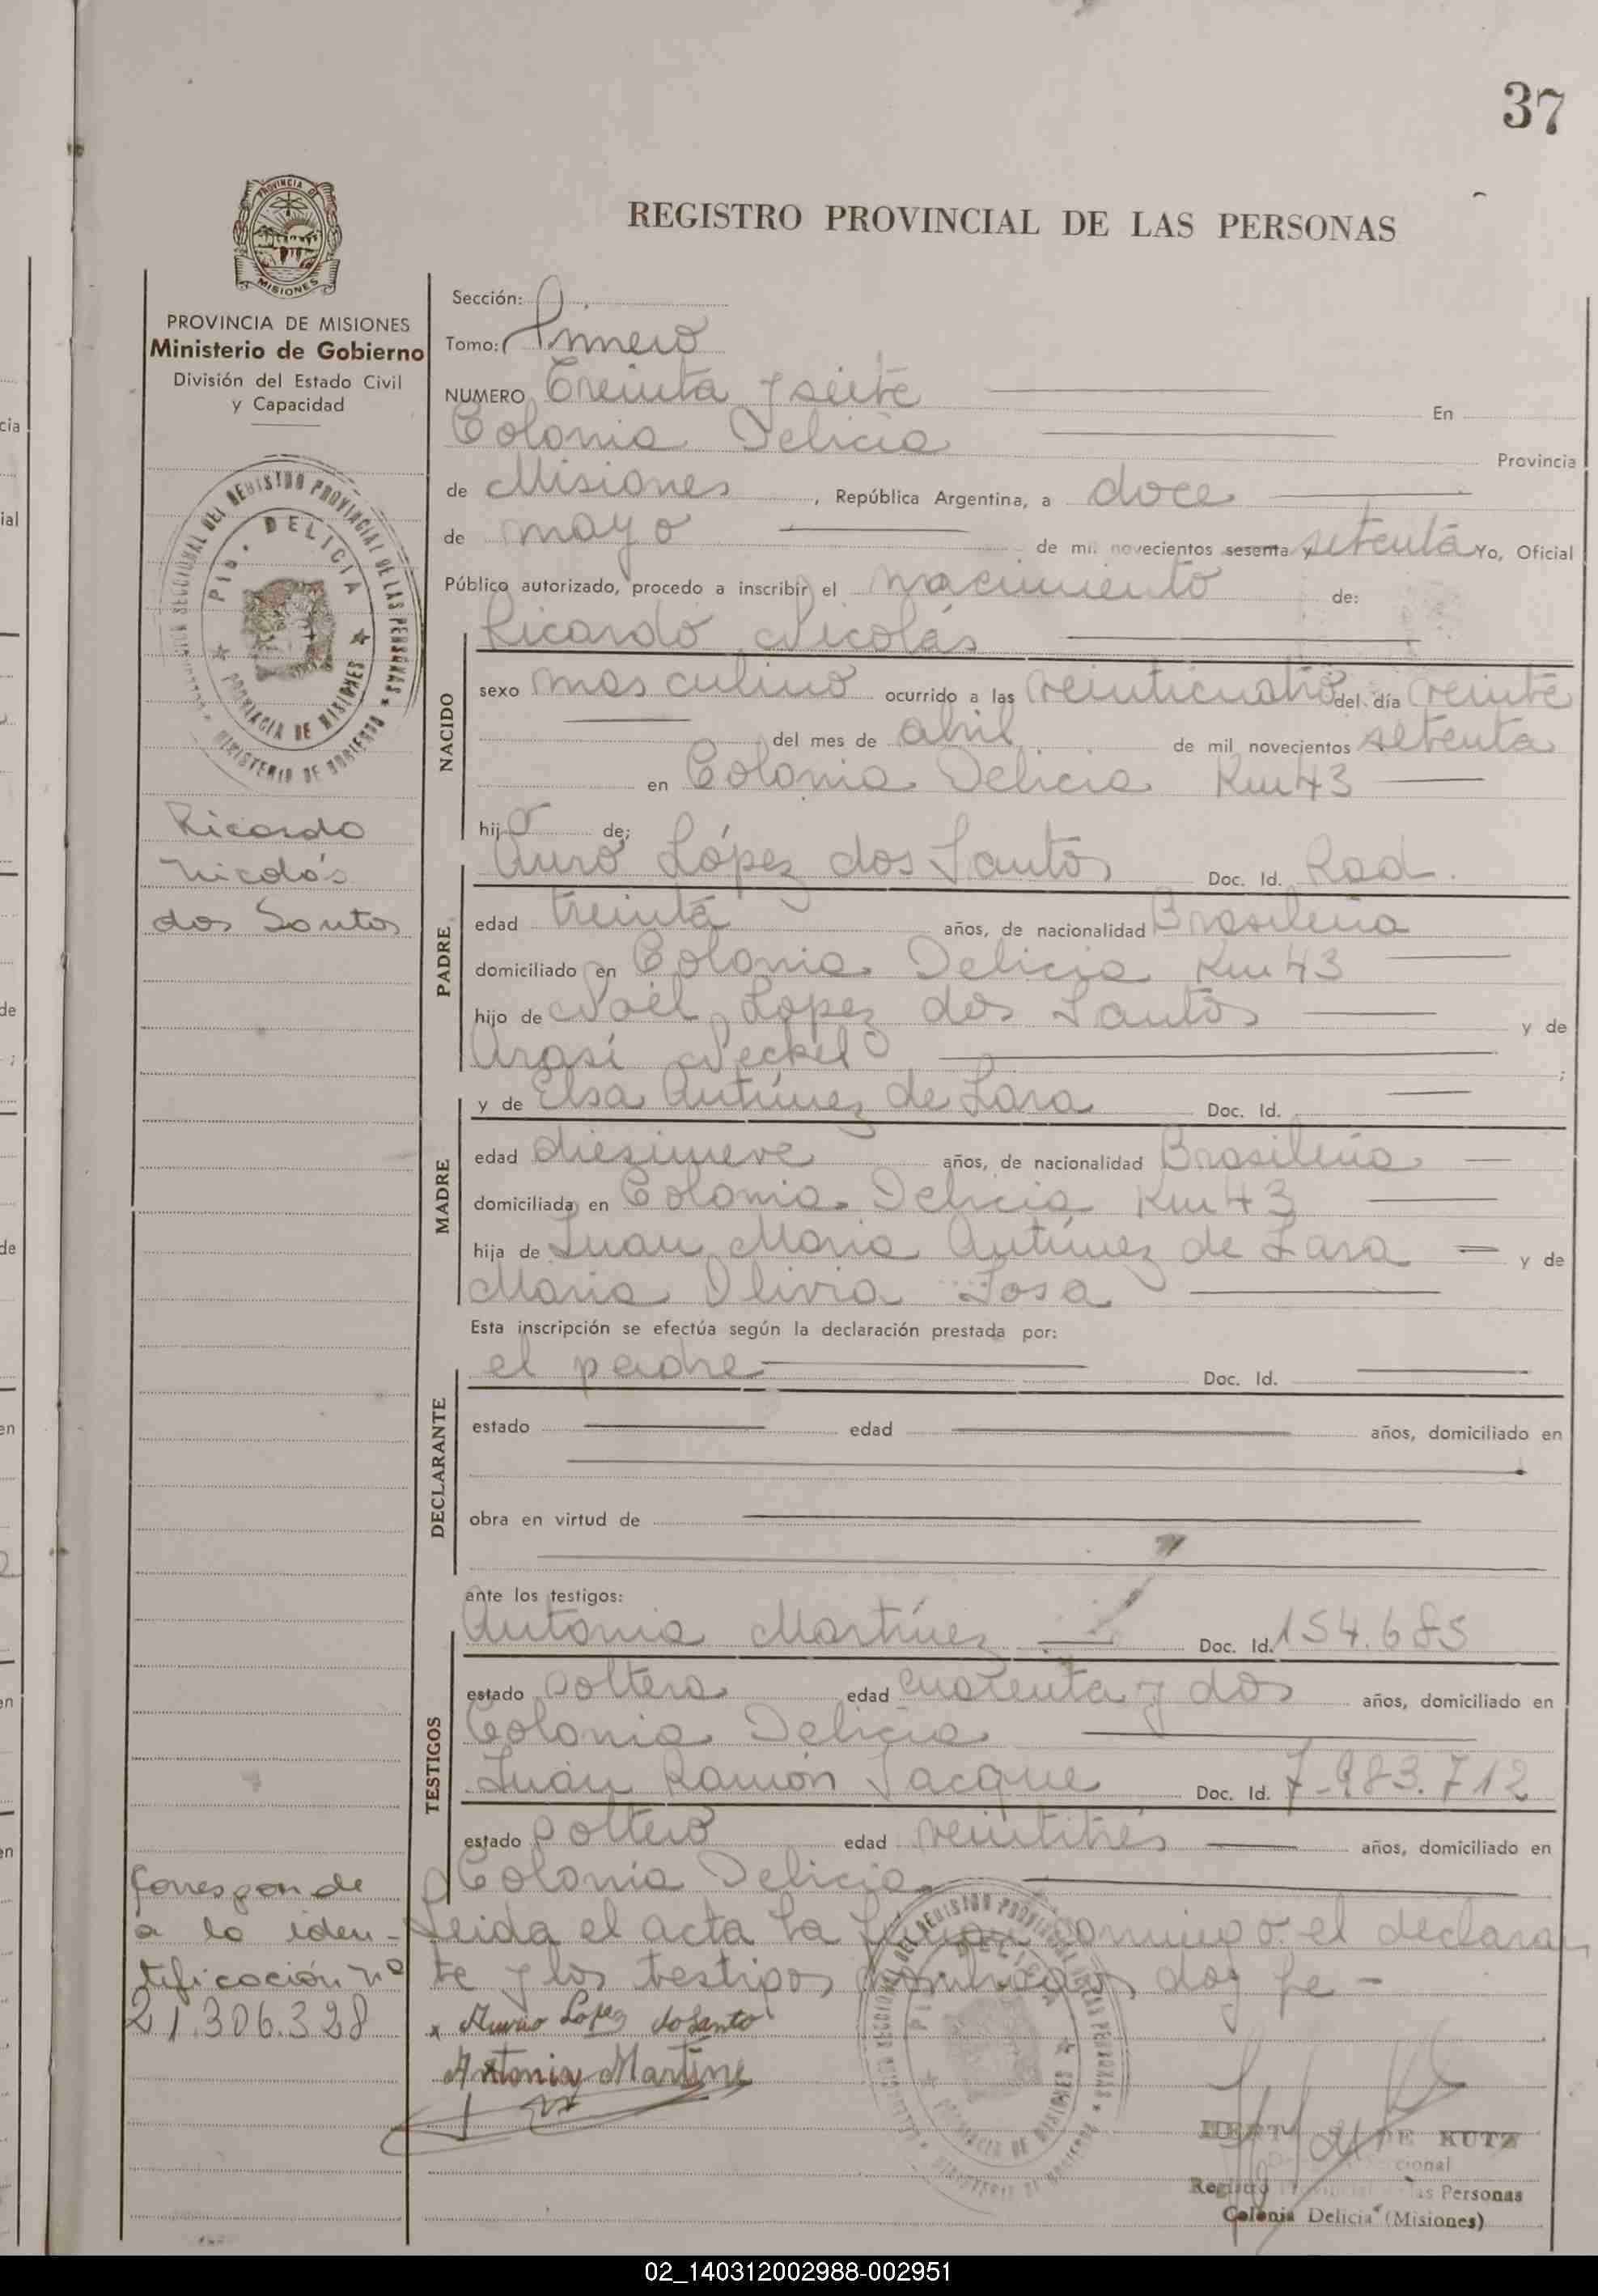 37
PROVINCIA DE
MISIONES
REGISTRO PROVINCIAL DE LAS PERSONAS
PROVINCIA DE MISIONES
Ministerio de Gobierno
División del Estado Civil
y Capacidad
Sección:
Tomo: Primero
NUMERO Treinta y siete En
Colonia Delicia Provincia
de Misiones, República Argentina, a doce
de mayo de mil novecientos sesenta y setenta Yo, Oficial
Público autorizado, procedo a inscribir el nacimiento de:
Ricardo Nicolás
NACIDO
sexo masculino ocurrido a las veinticuatro del día veinte
del mes de abril de mil novecientos setenta
en Colonia Delicia Km 43
hijo de:
Ricardo
Nicolás
dos Santos
PADRE
Auro López dos Santos Doc. Id. Rad.
edad treinta años, de nacionalidad Brasileña
domiciliado en Colonia Delicia Km 43
hijo de Noel Lopez dos Santos y de
Arasí Neckel ;
MADRE
y de Elsa Antúnez de Lara Doc. Id.
edad diesinueve años, de nacionalidad Brasileña
domiciliada en Colonia Delicia Km 43
hija de Juan Maria Antúnez de Lara y de
Maria Olivia Sosa
Esta inscripción se efectúa según la declaración prestada por:
DECLARANTE
el padre Doc. Id.
estado edad años, domiciliado en
obra en virtud de
ante los testigos:
TESTIGOS
Antonia Martínez Doc. Id. 154.685
estado soltera edad cuarenta y dos años, domiciliado en
Colonia Delicia
Juan Ramón Jacque Doc. Id. 7.983.712
estado soltero edad veintitrés años, domiciliado en
Colonia Delicia
Leida el acta la firman conmigo el declaran
te y los testigos nombrados doy fe -
Corresponde
a la iden-
tificación nº
21.306.328
x Lopez dosanto
Antonia Martine
DE KUTZ
Registro Provincial de las Personas
Colonia Delicia (Misiones)
02_140312002988-002951